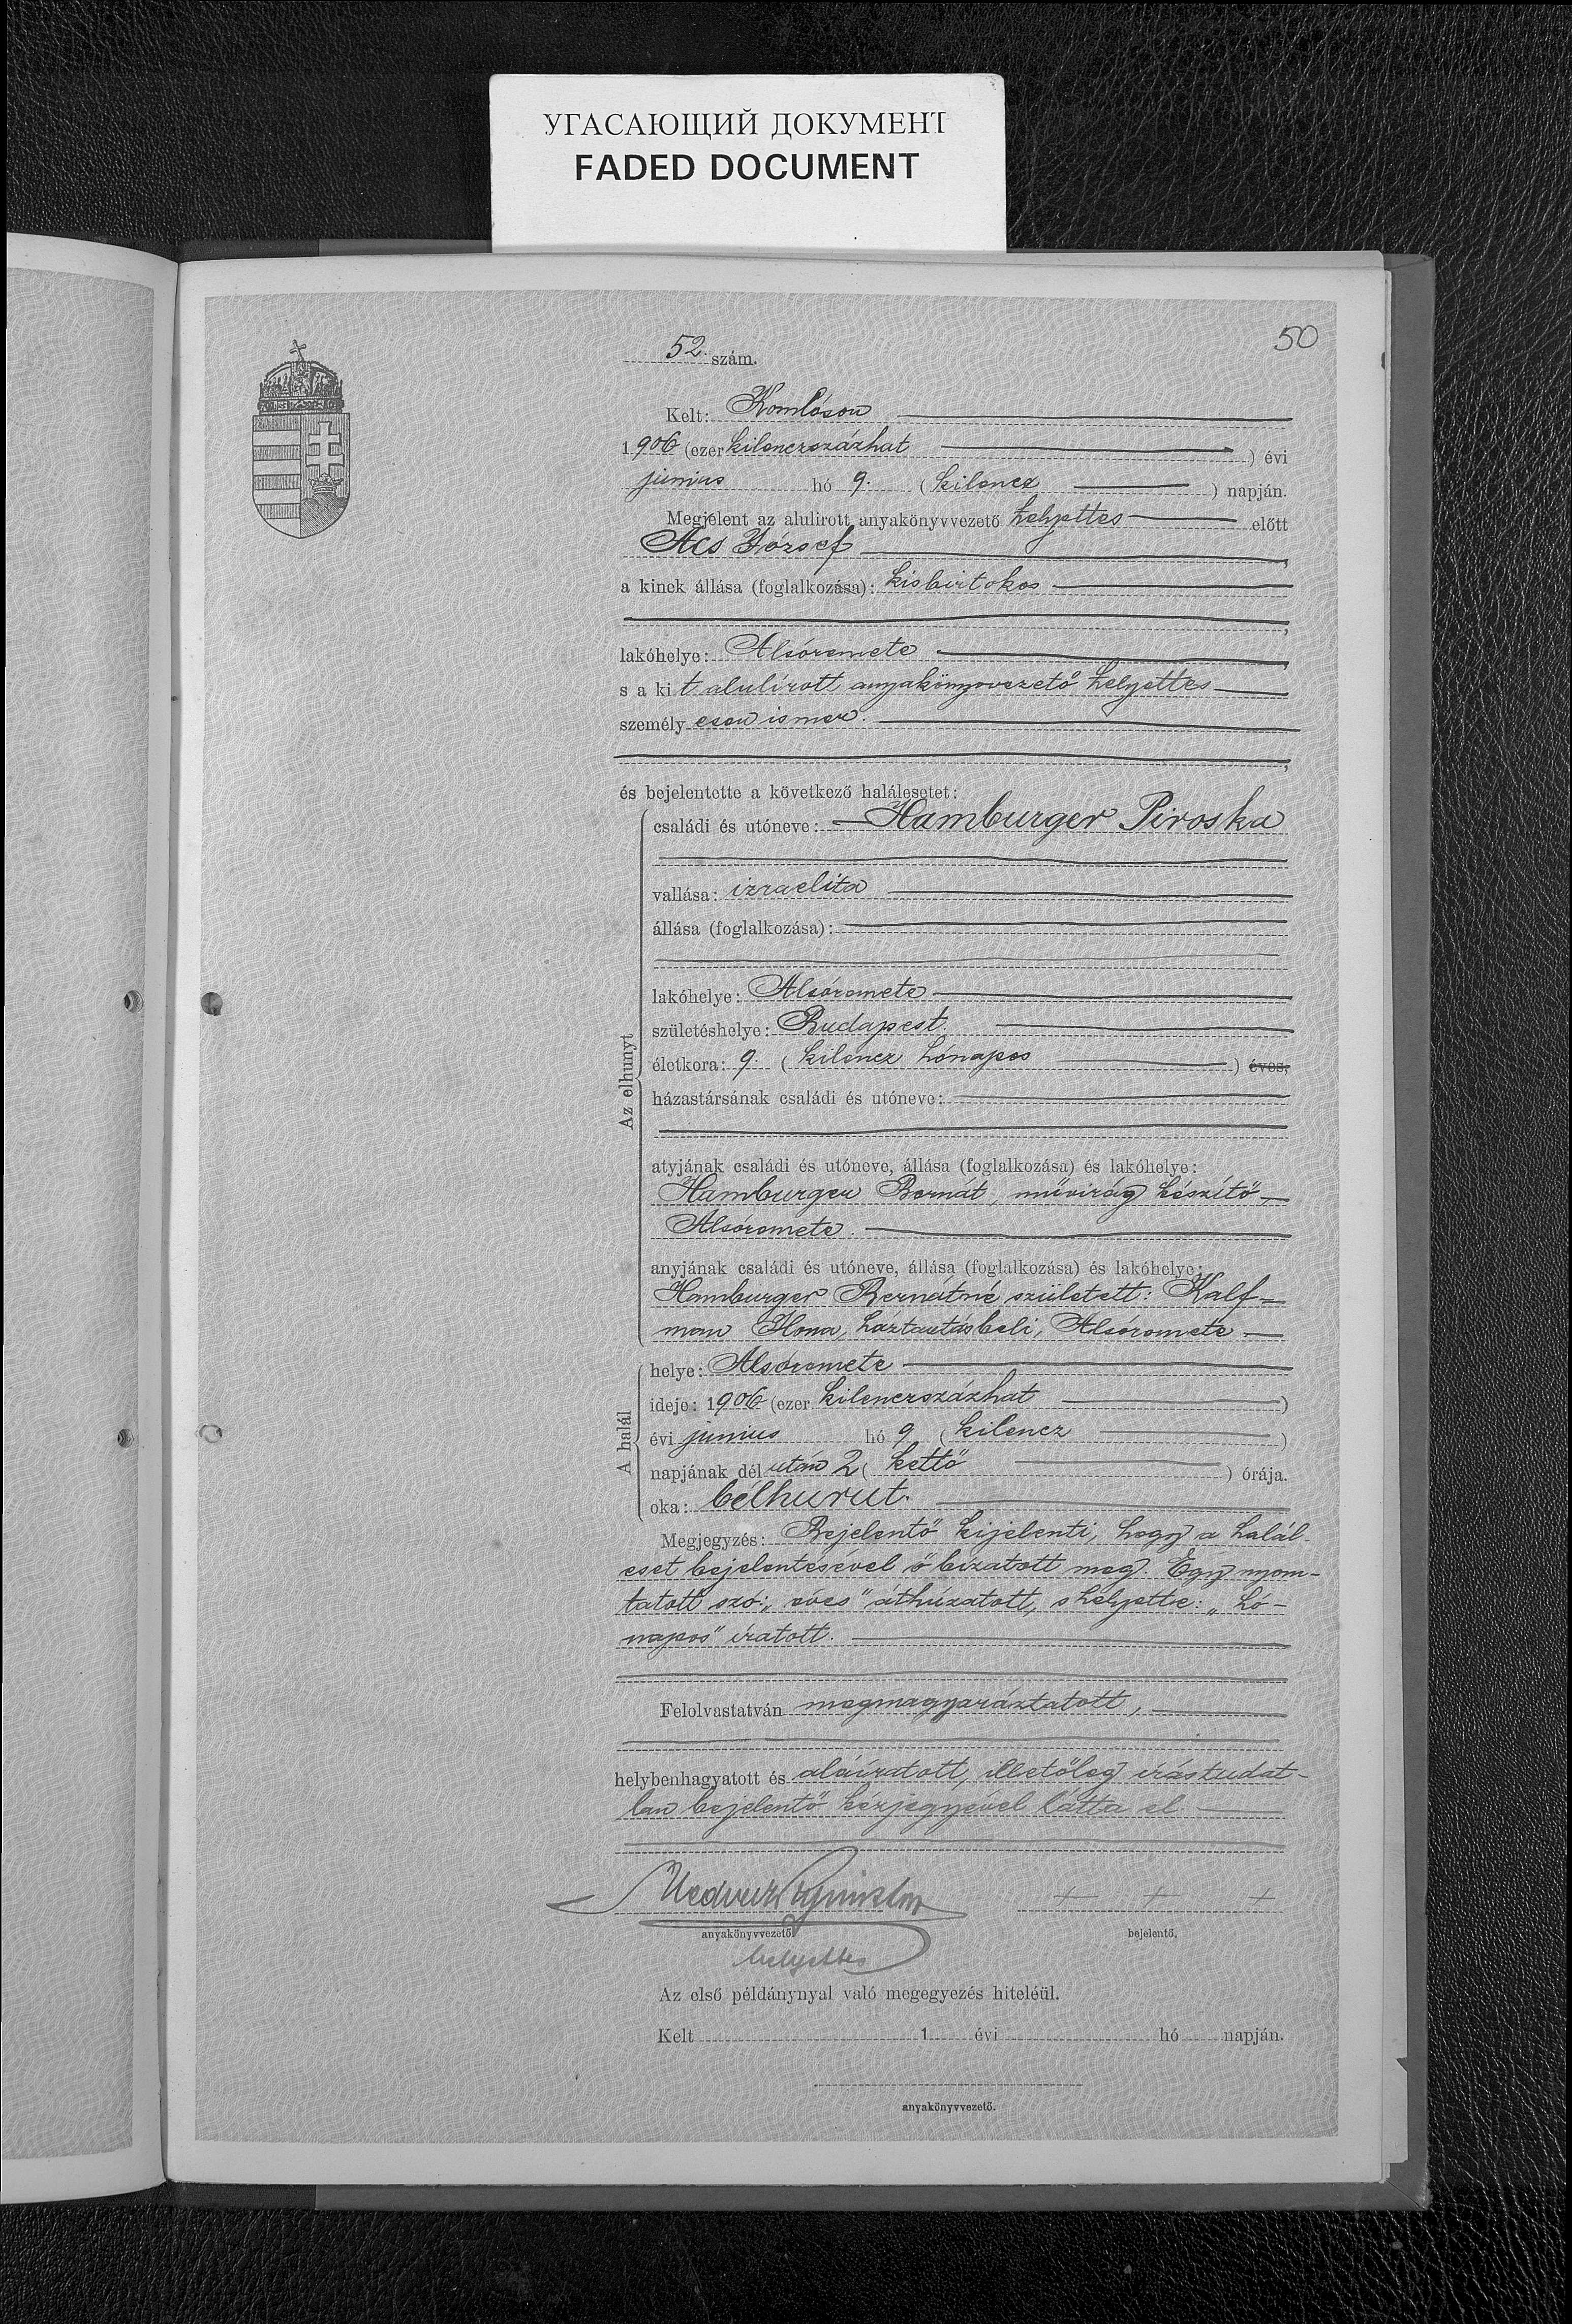 УГАСАЮЩИЙ ДОКУМЕНТ
FADED DOCUMENT
50
52. szám.
Kelt: Komlóson
1906 (ezer kilenczszázhat ) évi
junius hó 9. (kilencz ) napján.
Megjelent az alulirott anyakönyvvezető helyettes előtt
Ács József,
a kinek állása (foglalkozása): kisbirtokos
,
lakóhelye: Alsóremete,
s a kit alulírott anyakönyvvezető helyettes
személyesen ismer.
,
és bejelentette a következő halálesetet:
Az elhunyt
családi és utóneve: Hamburger Piroska
vallása: izraelita
állása (foglalkozása):
lakóhelye: Alsóremete
születéshelye: Budapest.
életkora: 9. (kilencz hónapos ) éves,
házastársának családi és utóneve:
atyjának családi és utóneve, állása (foglalkozása) és lakóhelye:
Hamburger Bernát, művirág készítő,
Alsóremete.
anyjának családi és utóneve, állása (foglalkozása) és lakóhelye:
Hamburger Bernátné született: Kalf-
man Ilona, háztartásbeli, Alsóremete
A halál
helye: Alsóremete
ideje: 1906 (ezer kilenczszázhat )
évi junius hó 9 (kilencz )
napjának délután 2 (kettő ) órája.
oka: bélhurut.
Megjegyzés: Bejelentő kijelenti, hogy a halál-
eset bejelentésével ő bízatott meg. Egy nyom-
tatott szó: „éves" áthúzatott, s helyette: „hó-
napos" íratott.
Felolvastatván megmagyaráztatott,
helybenhagyatott és aláíratott, illetőleg írástudat-
lan bejelentő kézjegyével látta el.
+ + +
anyakönyvvezető. bejelentő.
helyettes
Az első példánynyal való megegyezés hiteléül.
Kelt 1 évi hó napján.
anyakönyvvezető.